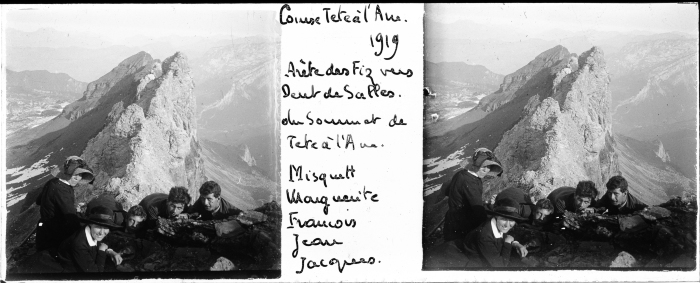 Course Tete à l'Ane.
1919
Arête des Fiz vers
Dent de Salles.
du Sommet de
Tete à l'Ane.
Misquett
Marguerite
François
Jean
Jacques.